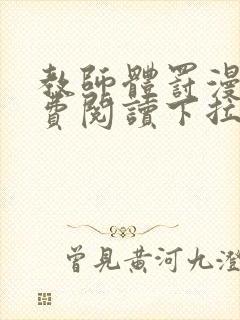 教師體罰漫
費閱讀下拉
曾見黃河九澄